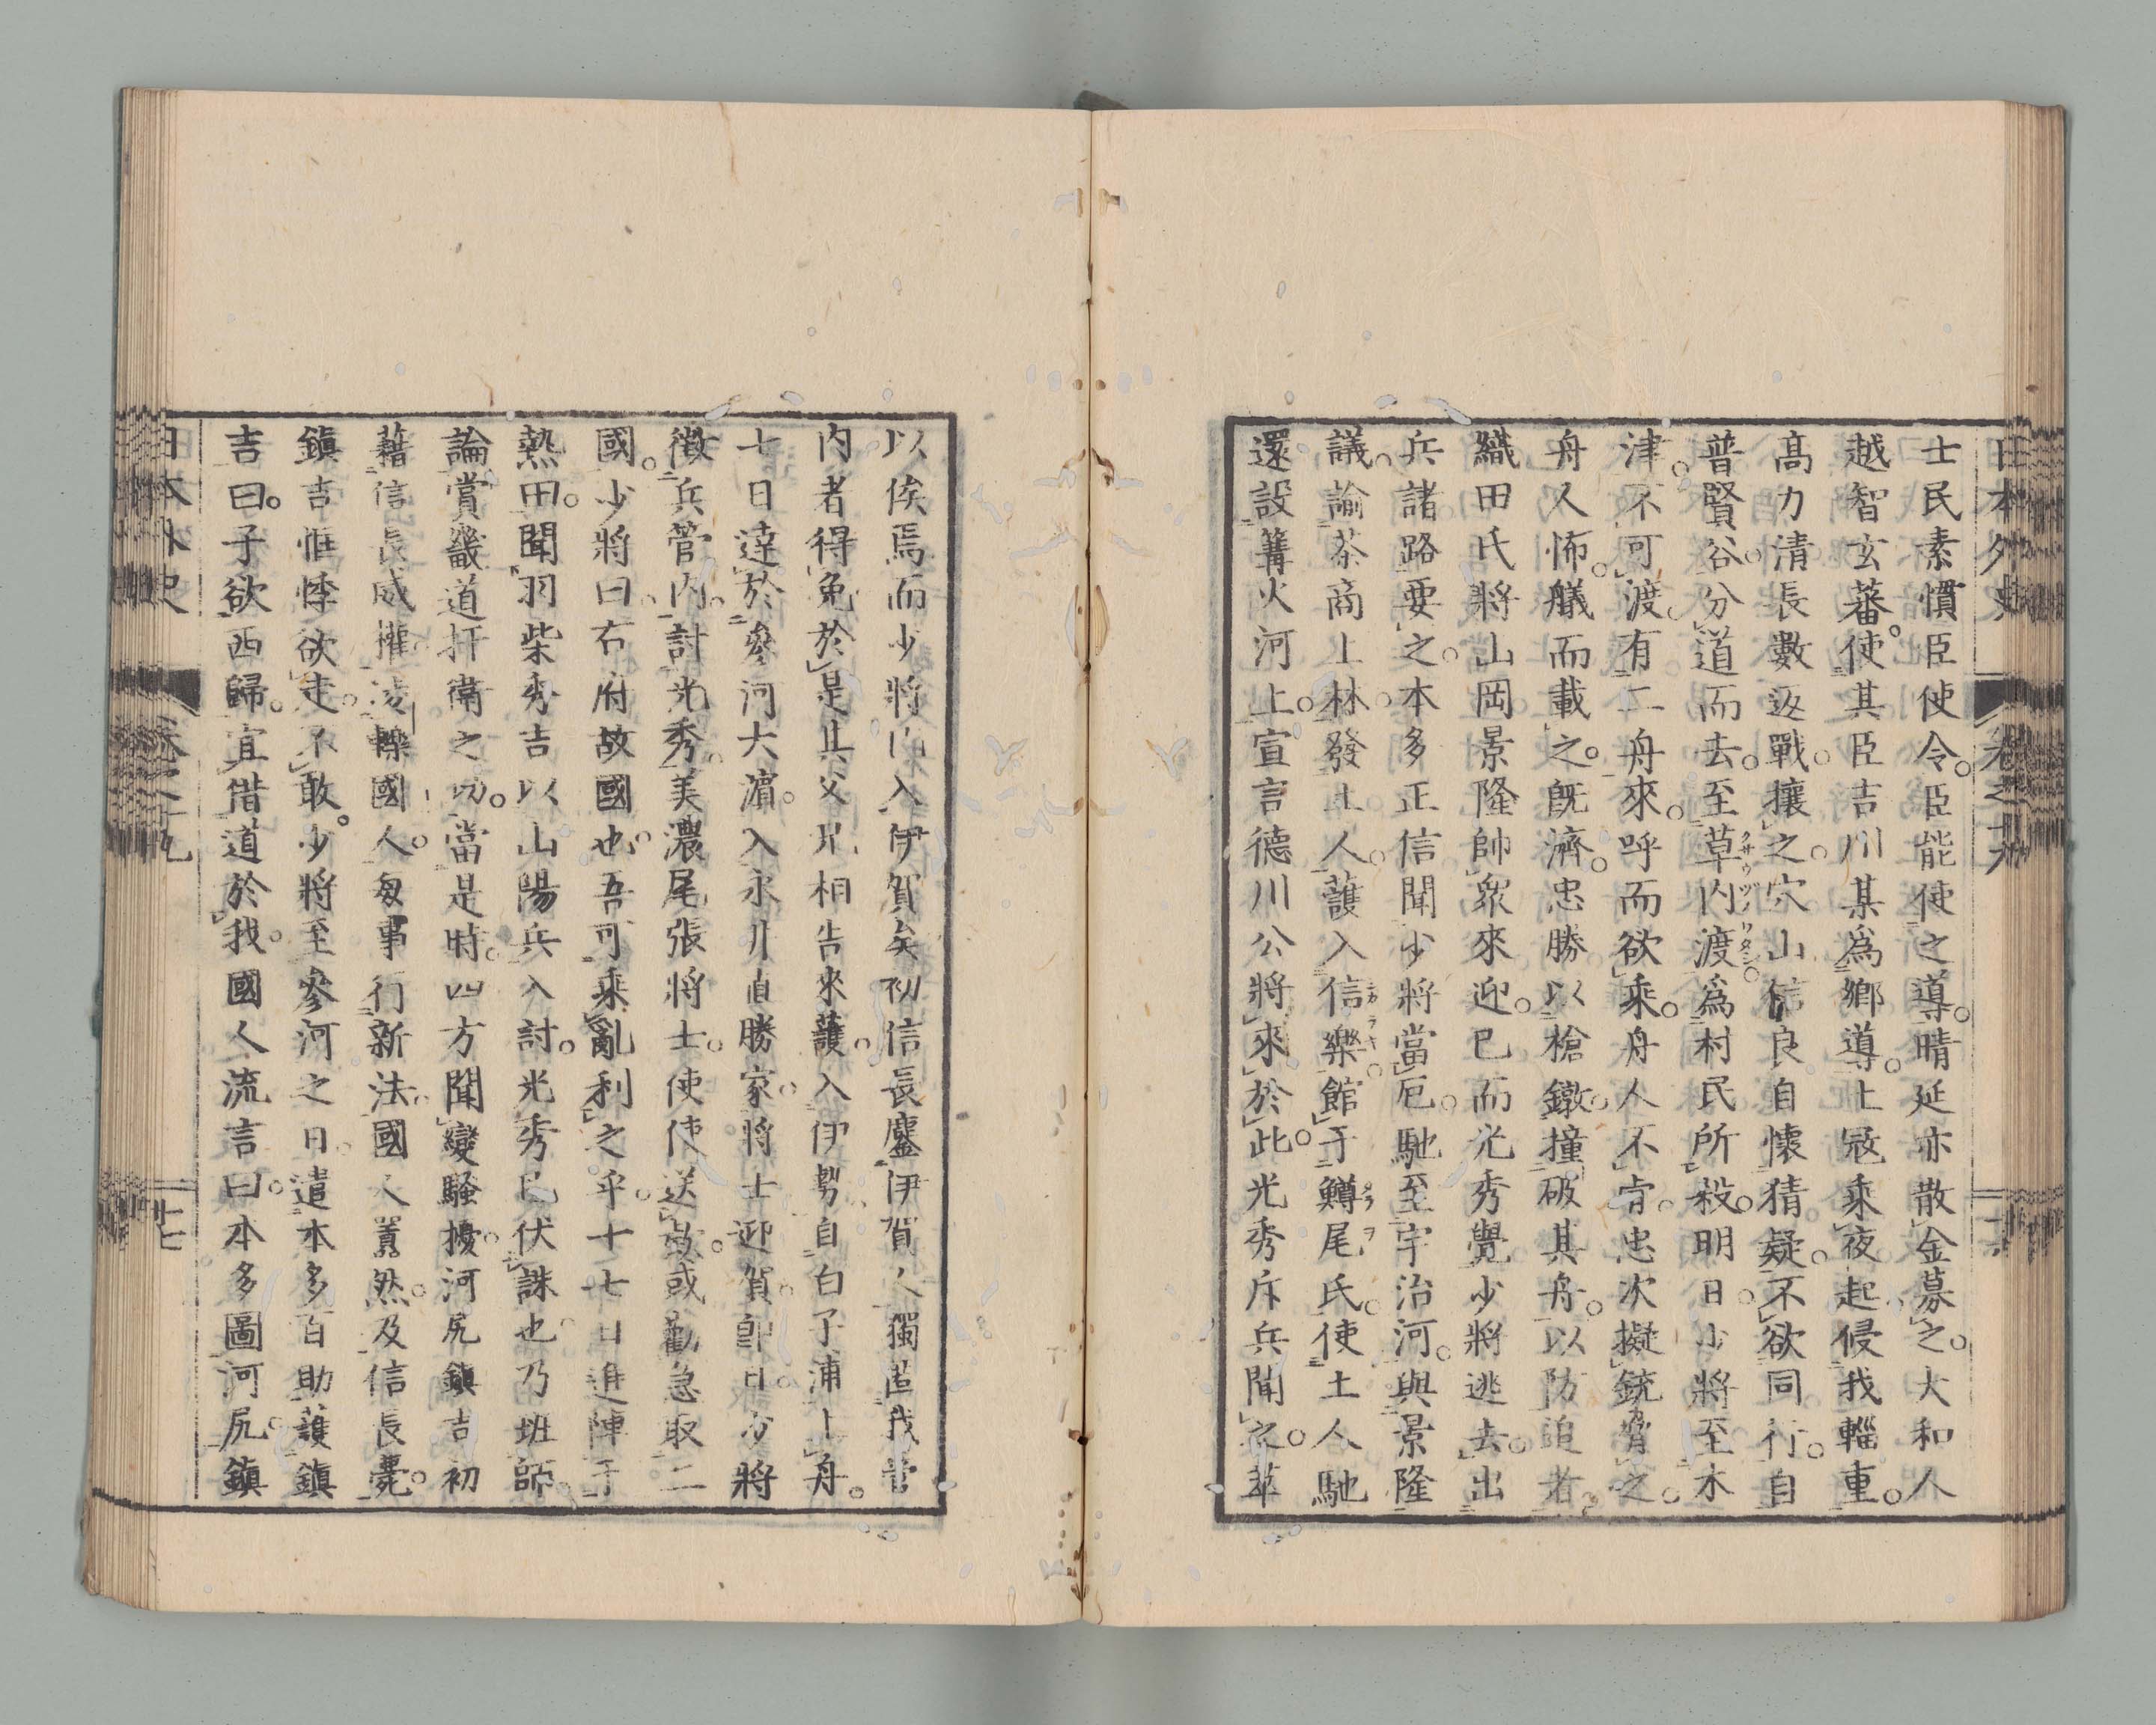 日本外史 卷之十九 十六
士民素慣臣使令。臣能使之導。晴延亦散金募之。大和人
越智玄蕃。使其臣吉川某爲鄉導。土寇乘夜起侵我輜重。
高力清長數返戰。攘之。穴山信良自懷猜疑。不欲同行。自
普賢谷分道而去。至草内渡。爲村民所殺。明日少將至木
津。不可渡。有二舟來。呼而欲乘。舟人不肯。忠次擬銃脅之。
舟人怖。艤而載之。既濟。忠勝以槍鐓。撞破其舟。以防追者。
織田氏將山岡景隆帥衆來迎。已而光秀覺少將逃去。出
兵諸路要之。本多正信聞少將當厄。馳至宇治河。與景隆
議。諭茶商上林發土人。護入信樂。館于鱒尾氏。使土人馳
還設篝火河上。宣言德川公將來於此。光秀斥兵聞之。萃
以俟焉。而少將已入伊賀矣。初信長鏖伊賀人。獨匿我管
内者得免。於是其父兄相告來護。入伊勢。自白子浦上舟。
七日達於參河大濱。入永井直勝家。將士迎賀。卽日少將
徵兵管内。討光秀。美濃尾張將士。使使送欵。或勸急取二
國。少將曰。右府故國也。吾可乘亂利之乎。十七日進陣于
熱田。聞羽柴秀吉以山陽兵入討。光秀已伏誅也。乃班師。
論賞畿道扞衞之功。當是時。四方聞變騷擾。河尻鎭吉初
藉信長威權。凌轢國人。每事行新法。國人嚚然。及信長薨。
鎭吉恇悸欲走。不敢。少將至參河之日。遣本多百助護鎭
吉曰。子欲西歸。宜借道於我。國人流言曰。本多圖河尻。鎭
日本外史 卷之十九 十七
クサウヅノワタシ
シガラキ
タラヲ